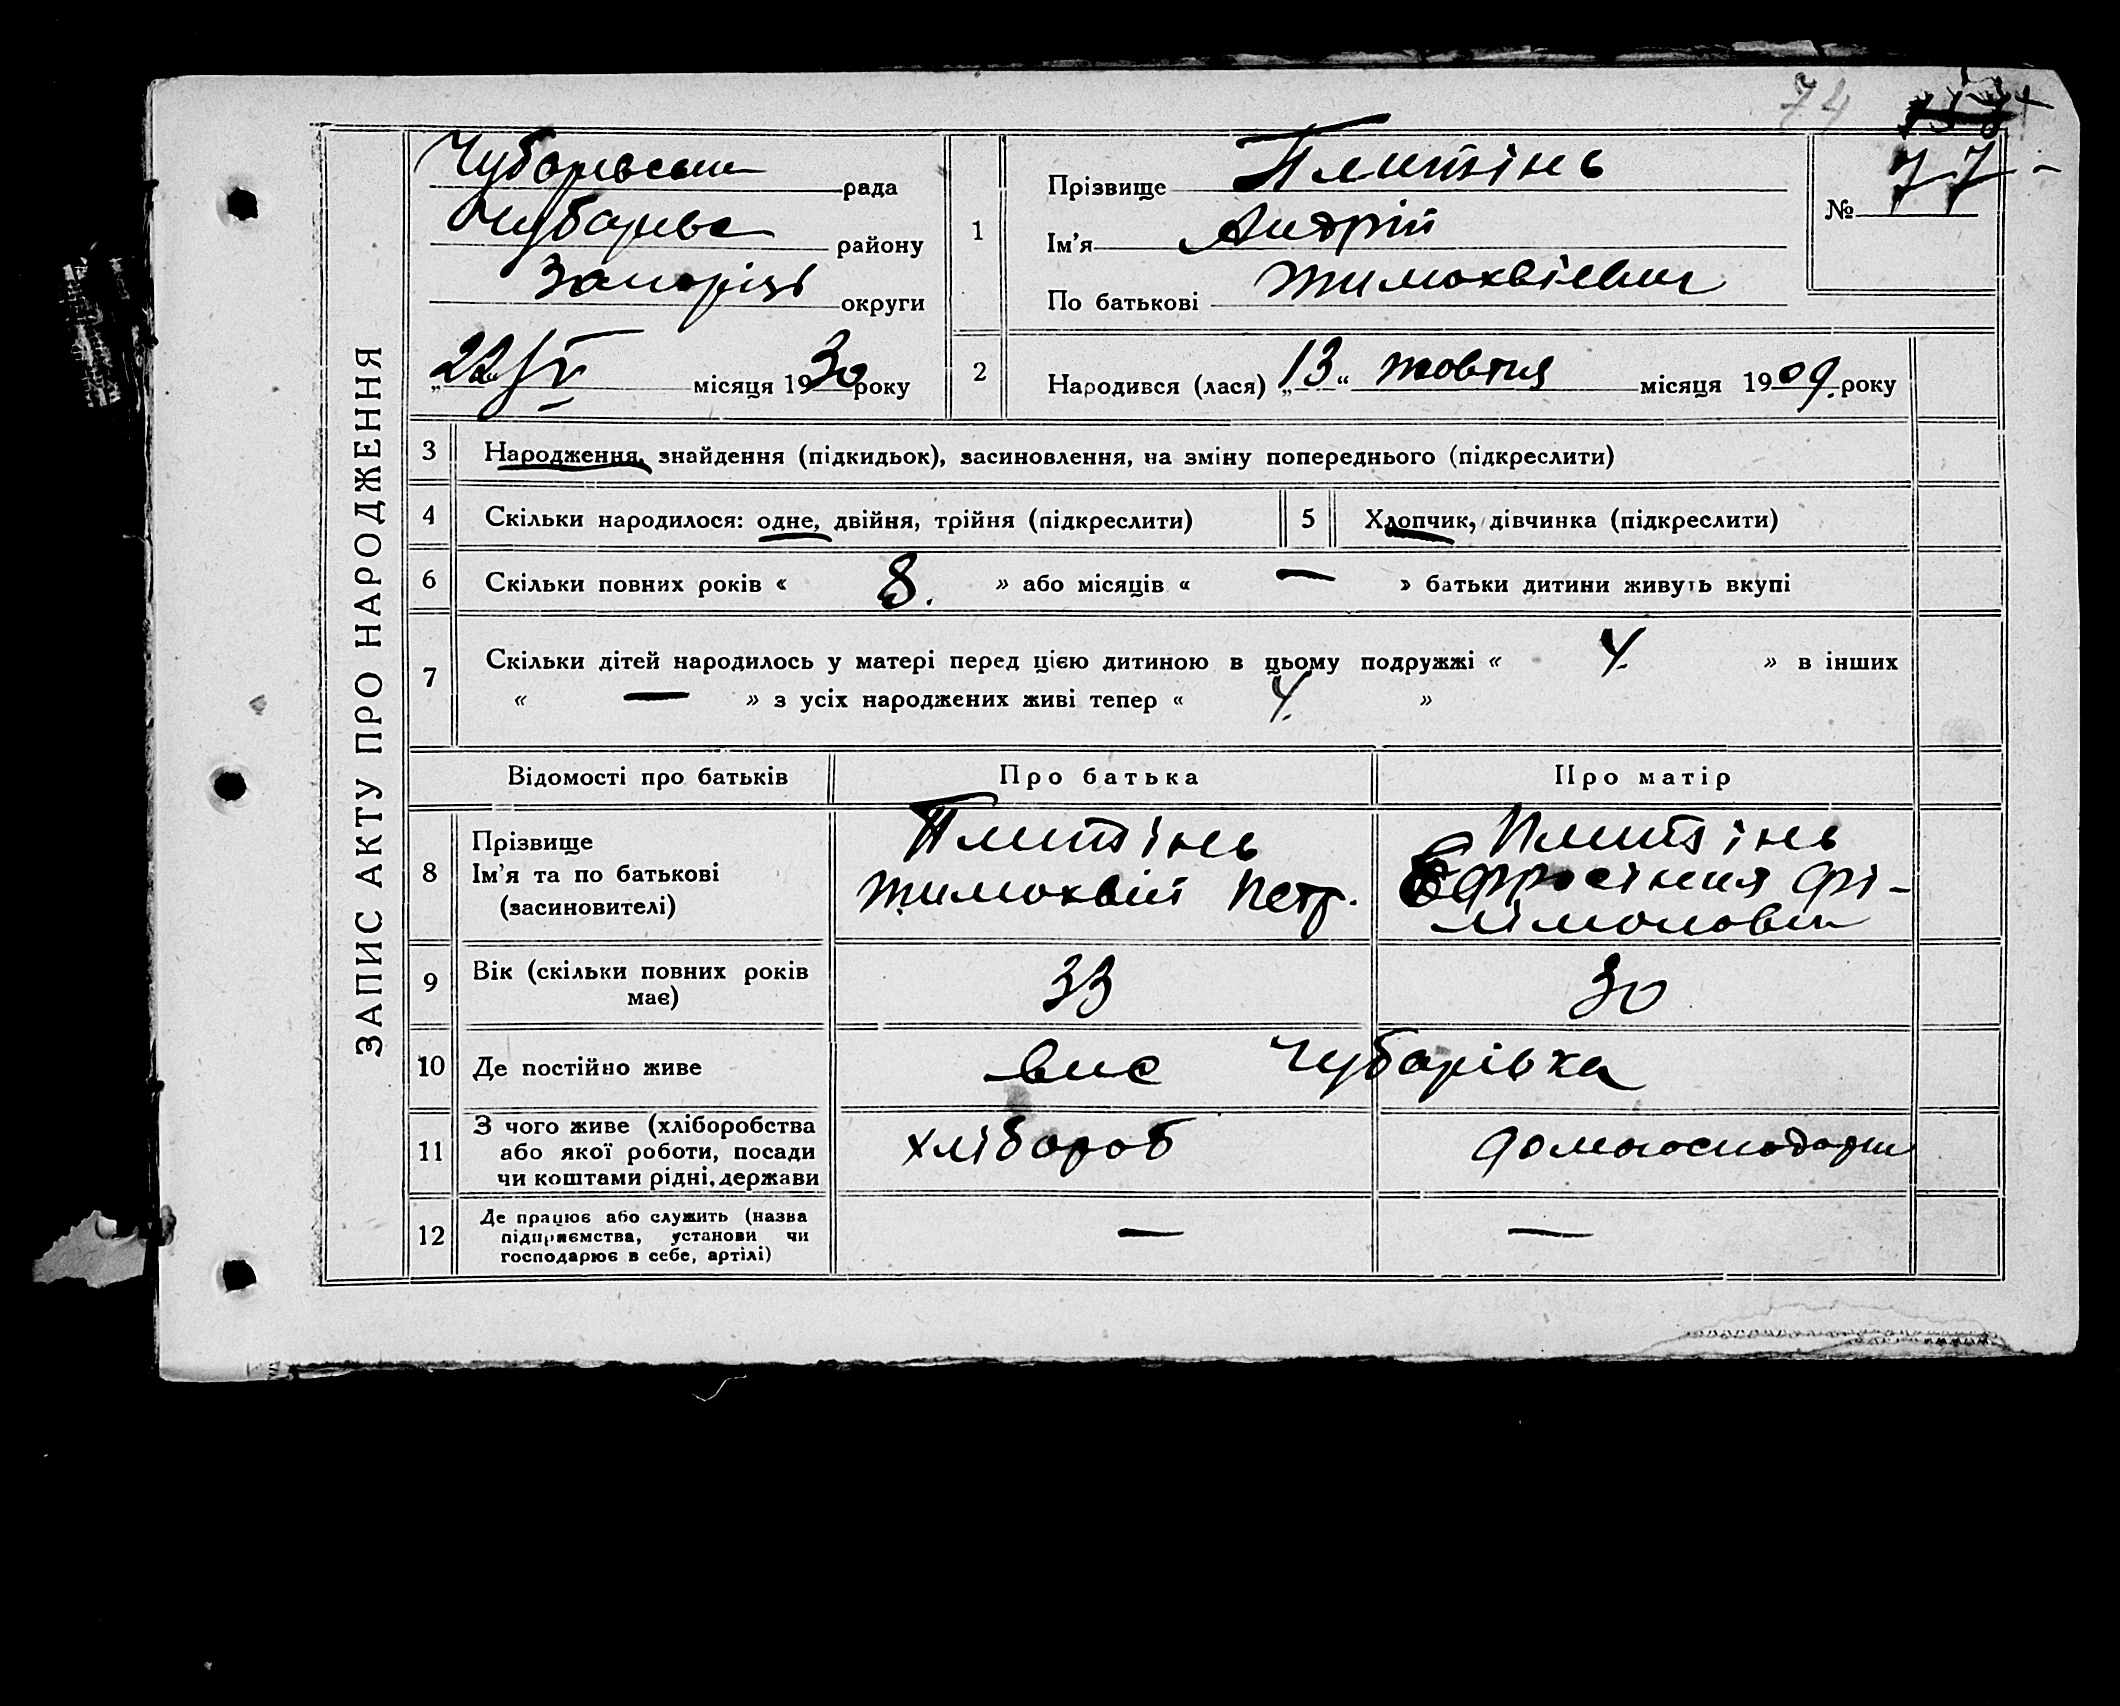 74
ЗАПИС АКТУ ПРО НАРОДЖЕННЯ
Чубарівська рада
Чубарівс району
Запоріз округи
„22/V місяця 1930 року
1
Прізвище Плитінь
Ім'я Андрій
По батькові Тимохвієвич
№ 77
2
Народився (лася) „13“ жовтня місяця 1909. року
3 Народження, знайдення (підкидьок), засиновлення, на зміну попереднього (підкреслити)
4 Скільки народилося: одне, двійня, трійня (підкреслити)
5 Хлопчик, дівчинка (підкреслити)
6 Скільки повних років « 8. » або місяців « — » батьки дитини живуть вкупі
7 Скільки дітей народилось у матері перед цією дитиною в цьому подружжі « 4. » в інших
« — » з усіх народжених живі тепер « 4. »
Відомості про батьків Про батька Про матір
8 Прізвище
Ім'я та по батькові
(засиновителі)
Плитінь
Тимохвій Петр.
Плитінь
Ефросінія Фі-
лімоновн
9 Вік (скільки повних років
має)
33
30
10 Де постійно живе
вис Чубарівка
11 З чого живе (хліборобства
або якої роботи, посади
чи коштами рідні, держави
хлібороб
домогосподарк
12 Де працює або служить (назва
підприємства, установи чи
господарює в себе, артілі)
—
—